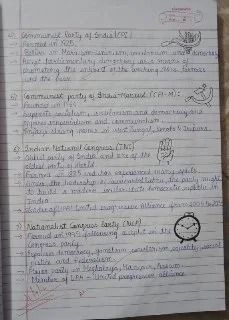 4) Communist Party of India (CPI)
→ Formed in 1925.
→ Believe in Marxism-Leninism, secularism and democracy.
→ Accept parliamentary democracy as a means of
promoting the interest of the working class, farmers
and the poor.
5) Communist party of India-Marxist (CPI-M):
→ Founded in 1964
→ Supports socialism, secularism and democracy and
opposes imperialism and communalism.
→ Enjoys strong in West Bengal, Kerala & Tripura.
6) Indian National Congress (INC)
→ Oldest party of India and one of the
oldest in world
→ Formed in 1885 and has experienced many splits.
→ Under the leadership of Jawaharlal Nehru, the party sought
to build a modern secular democratic republic in
India
→ Leader of United Progressive Alliance from 2004 to
7) Nationalist Congress Party (NCP)
→ Formed in 1999 following a split in the
Congress party.
→ Espouses democracy, Gandhian secularism, equality, social
justice and Federalism.
→ Power party in Meghalaya, Manipur, Assam
→ Member of UPA - United progressive alliance